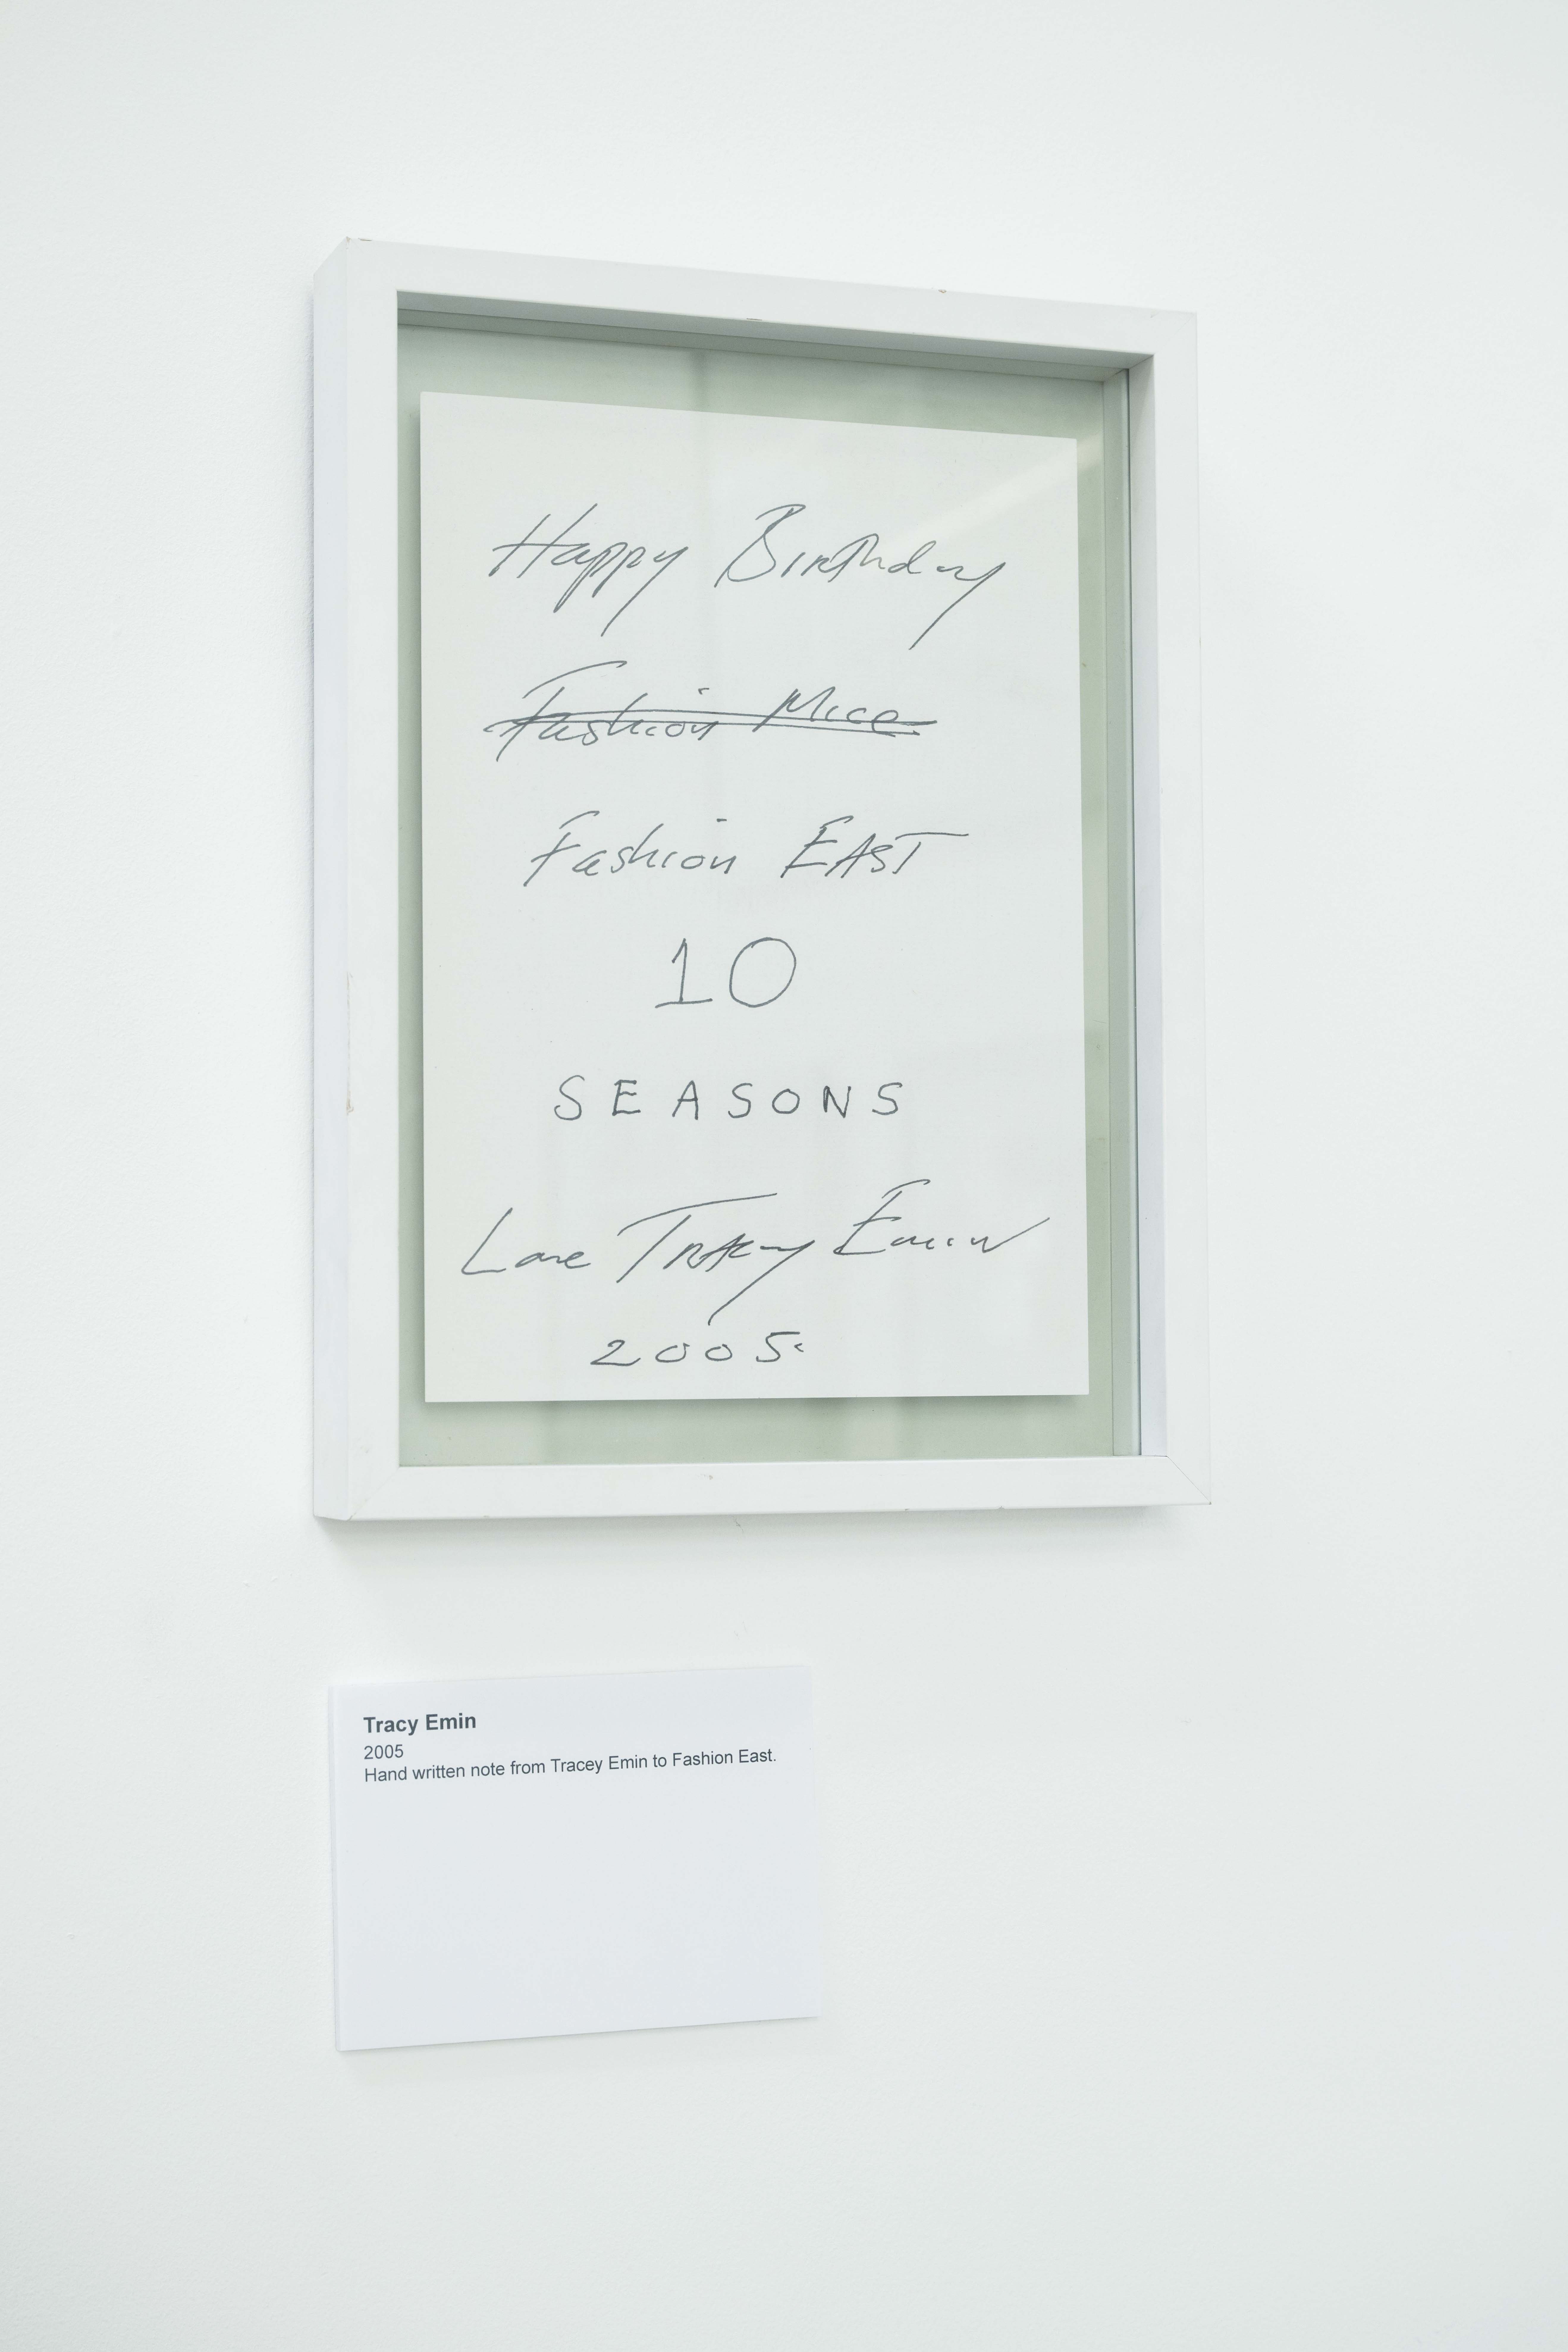 Happy Birthday
Fashion Mice
Fashion EAST
10
SEASONS
Love Tracey Emin
2005.
Tracy Emin
2005
Hand written note from Tracey Emin to Fashion East.